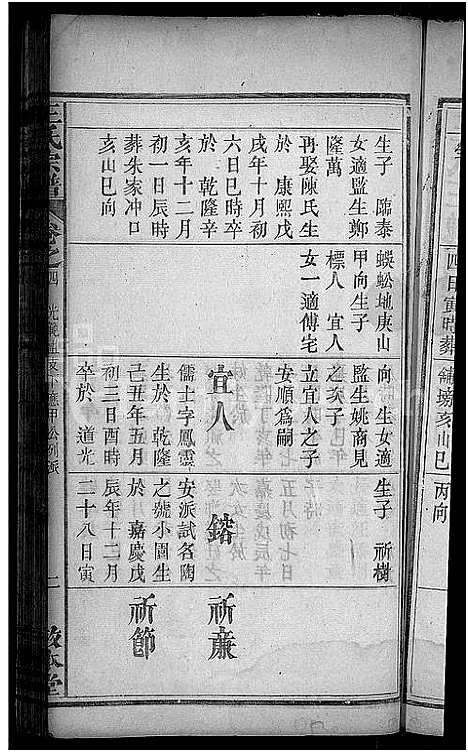 生子 臨泰
女適監生鄭
隆萬
再娶陳氏生
於 康熙戊
戌年十月初
六日巳時卒
於 乾隆辛
亥年十二月
初一日辰時
葬朱家冲口
亥山巳向
蜈蚣地庚山
甲向生子
標人 宜人
女一適傅宅
向 生女適
監生姚商見
之次子
立宜人之子
安順爲嗣
宜人
儒士字鳳靈
生於 乾隆
己丑年五月
初三日酉時
卒於 道光
生子 祈樹
鎔
安派試名陶
之號小園生
於 嘉慶戊
辰年十二月
二十八日寅
祈廉
祈節
王氏宗譜
卷之四
四日寅時葬
舖塝亥山巳
丙向